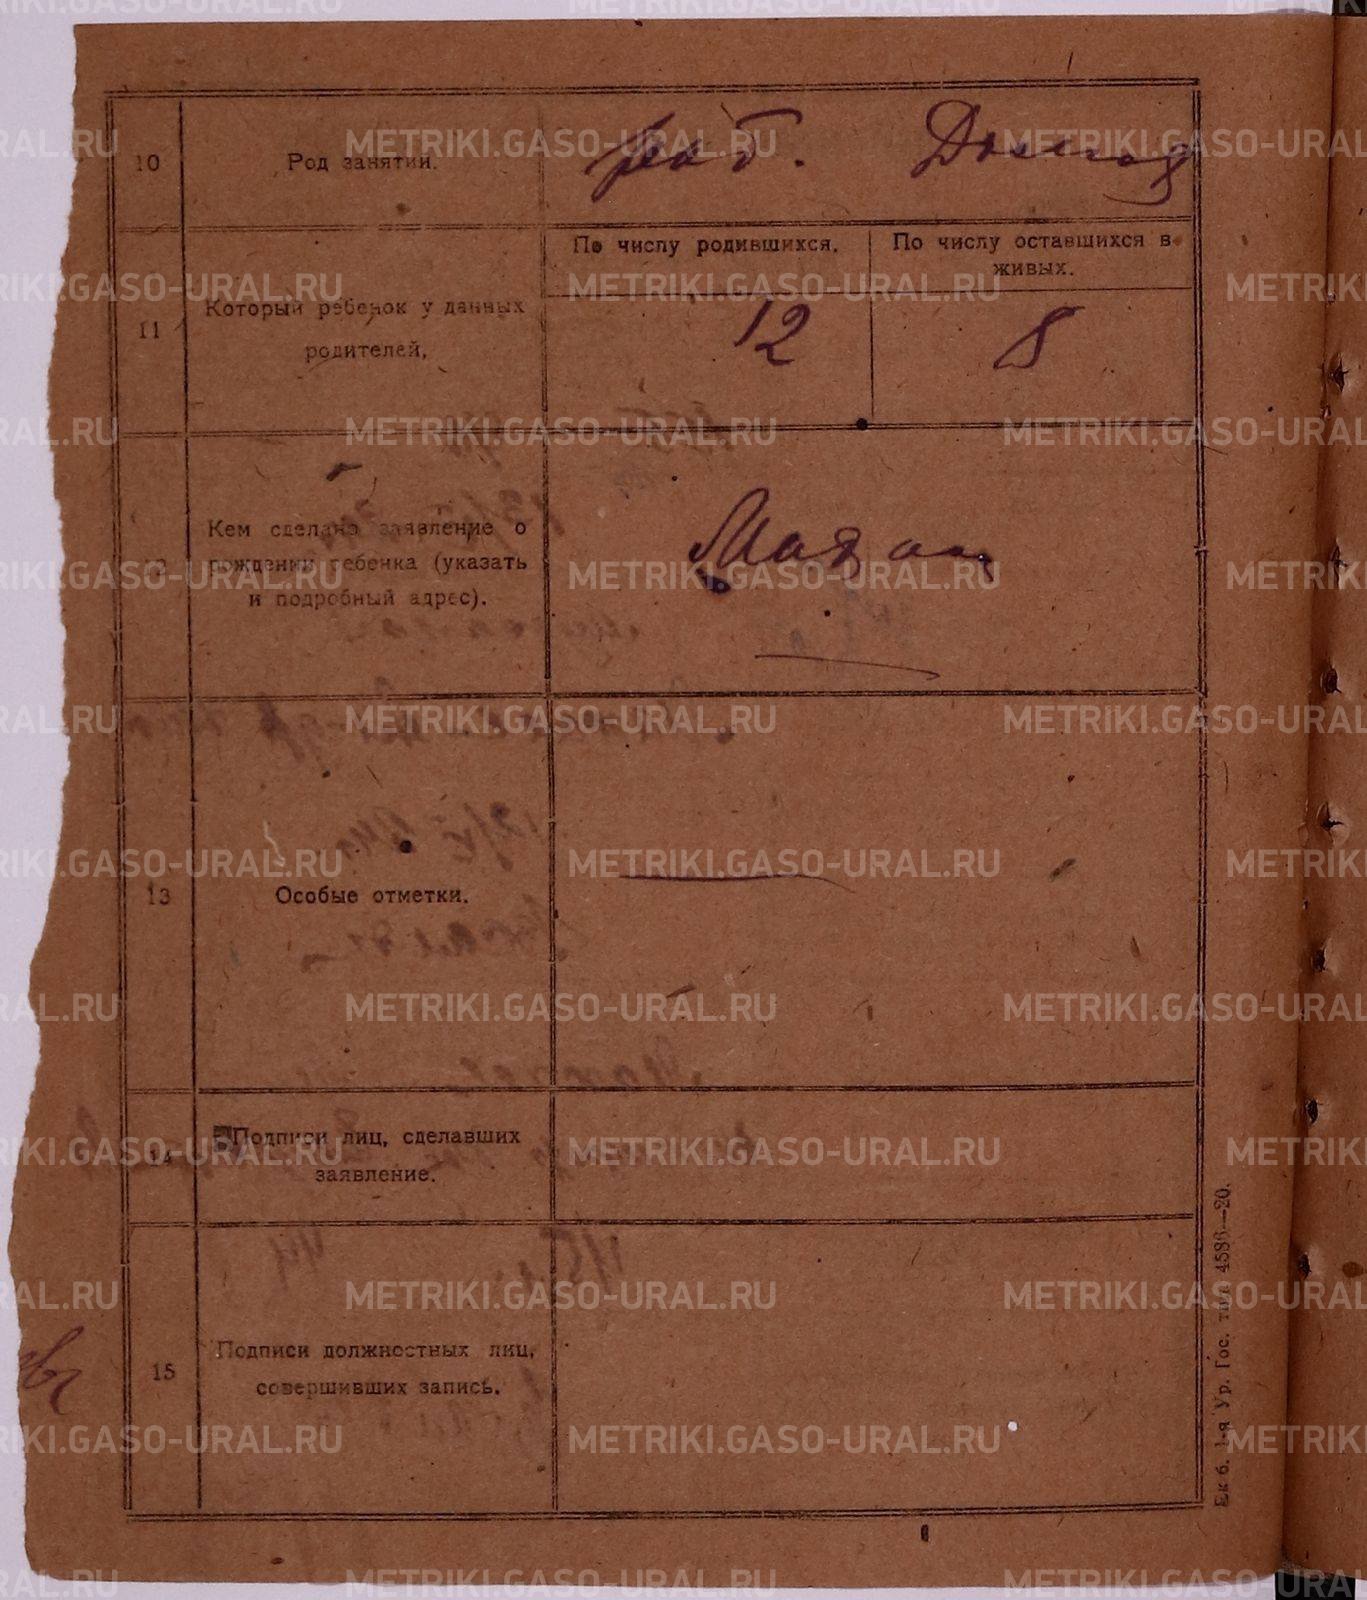 10 Род занятий. раб.
По числу родившихся. По числу оставшихся в
живых.
11 Который ребенок у данных
родителей, 12 8
Кем сделано заявление о
рождении ребенка (указать
и подробный адрес).
13 Особые отметки.
14 Подписи лиц, сделавших
заявление.
15 Подписи должностных лиц,
совершивших запись.
Ек б. 1-я Ур. Гос. тип 4586—20.
METRIKI.GASO-URAL.RU